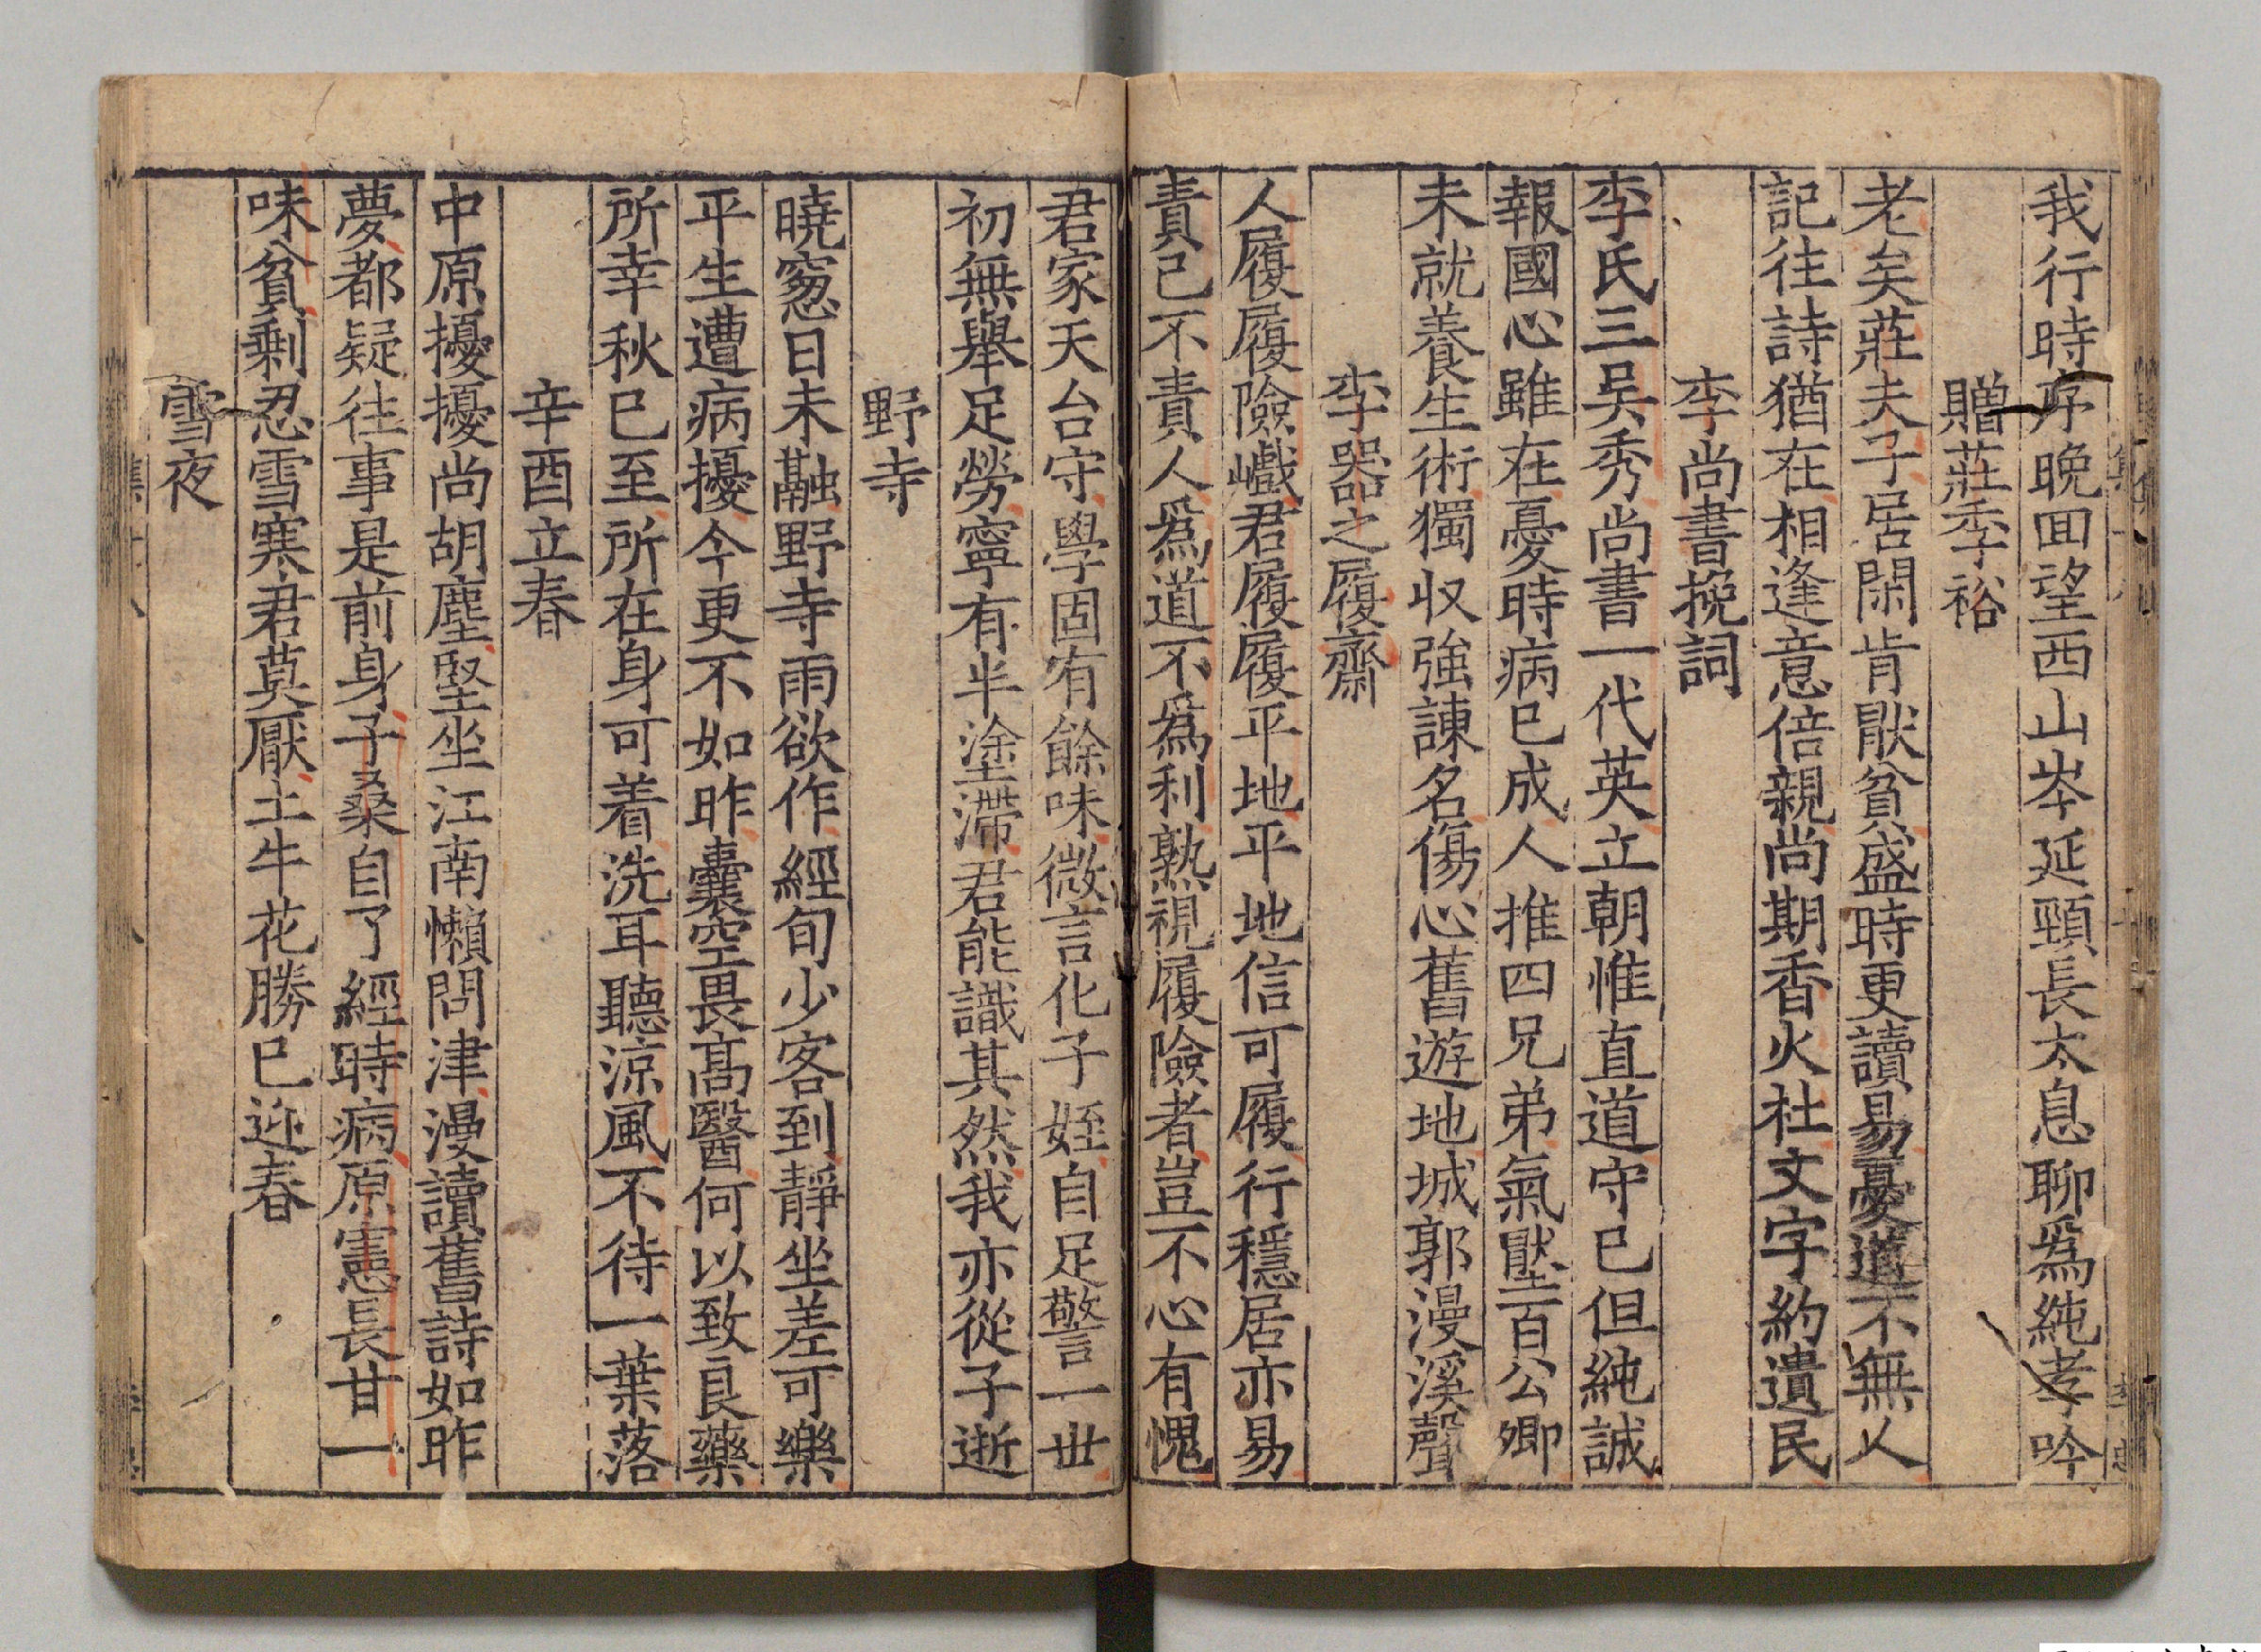 我行時序晚回望西山岑延頸長太息聊爲純孝吟
贈莊季裕
老矣莊夫子居閑肯猒貧盛時更讀易憂道不無人
記往詩猶在相逢意倍親尚期香火社文字約遺民
李尚書挽詞
李氏三吳秀尚書一代英立朝惟直道守己但純誠
報國心雖在憂時病已成人推四兄弟氣壓百公卿
未就養生術獨收強諫名傷心舊遊地城郭漫溪聲
李器之履齋
人履履險巇君履履平地平地信可履行穩居亦易
責己不責人爲道不爲利熟視履險者豈不心有愧
君家天台守學固有餘味微言化子姪自足警一丗
初無舉足勞寧有半塗滯君能識其然我亦從子逝
野寺
曉窓日未融野寺雨欲作經旬少客到靜坐差可樂
平生遭病擾今更不如昨囊空畏髙醫何以致良藥
所幸秋已至所在身可着洗耳聽涼風不待一葉落
辛酉立春
中原擾擾尚胡塵堅坐江南懶問津漫讀舊詩如昨
夢都疑往事是前身子桑自了經時病原憲長甘一
味貧剩忍雪寒君莫厭土牛花勝已迎春
雪夜